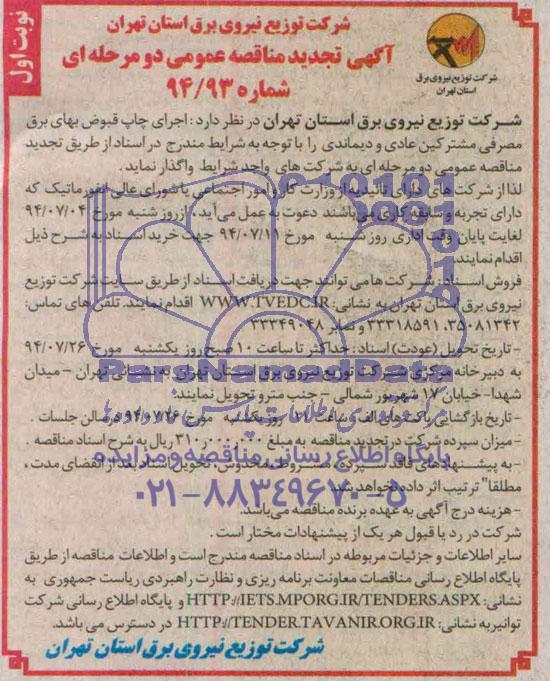 نوبت اول
شرکت توزیع نیروی برق استان تهران
آگهی تجدید مناقصه عمومی دو مرحله ای
شماره ۹۴/۹۳
شرکت توزیع نیروی برق
استان تهران
شرکت توزیع نیروی برق استان تهران در نظر دارد: اجرای چاپ قبوض بهای برق
مصرفی مشترکین عادی و دیماندی را با توجه به شرایط مندرج در اسناد از طریق تجدید
مناقصه عمومی دو مرحله ای به شرکت های واجد شرایط واگذار نماید.
لذا از شرکت های دارای تائیدیه از وزارت کار و امور اجتماعی یا شورای عالی انفورماتیک که
دارای تجربه و سابقه کاری می باشند دعوت به عمل می آید، از روز شنبه مورخ ۹۴/۰۷/۰۴
لغایت پایان وقت اداری روز شنبه مورخ ۹۴/۰۷/۱۱ جهت خرید اسناد به شرح ذیل
اقدام نمایند.
فروش اسناد: شرکت ها می توانند جهت دریافت اسناد از طریق سایت شرکت توزیع
نیروی برق استان تهران به نشانی: WWW.TVEDC.IR اقدام نمایند. تلفن های تماس:
۳۵۰۸۱۳۴۲، ۳۳۳۱۸۵۹۱ و نمابر ۳۳۳۴۹۰۴۸
- تاریخ تحویل (عودت) اسناد: حداکثر تا ساعت ۱۰ صبح روز یکشنبه مورخ ۹۴/۰۷/۲۶
به دبیرخانه مرکزی شرکت توزیع نیروی برق استان تهران به نشانی تهران - میدان
شهدا- خیابان ۱۷ شهریور شمالی - جنب مترو تحویل نمایند.
- تاریخ بازگشایی پاکت های الف: ساعت روز یکشنبه مورخ ۹۴/۰۷/۲۶ در سالن جلسات.
- میزان سپرده شرکت در تجدید مناقصه به مبلغ ۳۱۰,۰۰۰,۰۰۰ ریال به شرح اسناد مناقصه.
- به پیشنهادهای فاقد سپرده، مشروط، مخدوش، تحویل اسناد بعد از انقضای مدت،
مطلقا" ترتیب اثر داده نخواهد شد.
- هزینه درج آگهی به عهده برنده مناقصه می باشد.
شرکت در رد یا قبول هر یک از پیشنهادات مختار است.
سایر اطلاعات و جزئیات مربوطه در اسناد مناقصه مندرج است و اطلاعات مناقصه از طریق
پایگاه اطلاع رسانی مناقصات معاونت برنامه ریزی و نظارت راهبردی ریاست جمهوری به
نشانی: HTTP://IETS.MPORG.IR/TENDERS.ASPX و پایگاه اطلاع رسانی شرکت
توانیر به نشانی: HTTP://TENDER.TAVANIR.ORG.IR در دسترس می باشد.
شرکت توزیع نیروی برق استان تهران
ParsNamadData
پایگاه اطلاع رسانی مناقصه و مزایده
۰۲۱-۸۸۳۴۹۶۷۰-۵